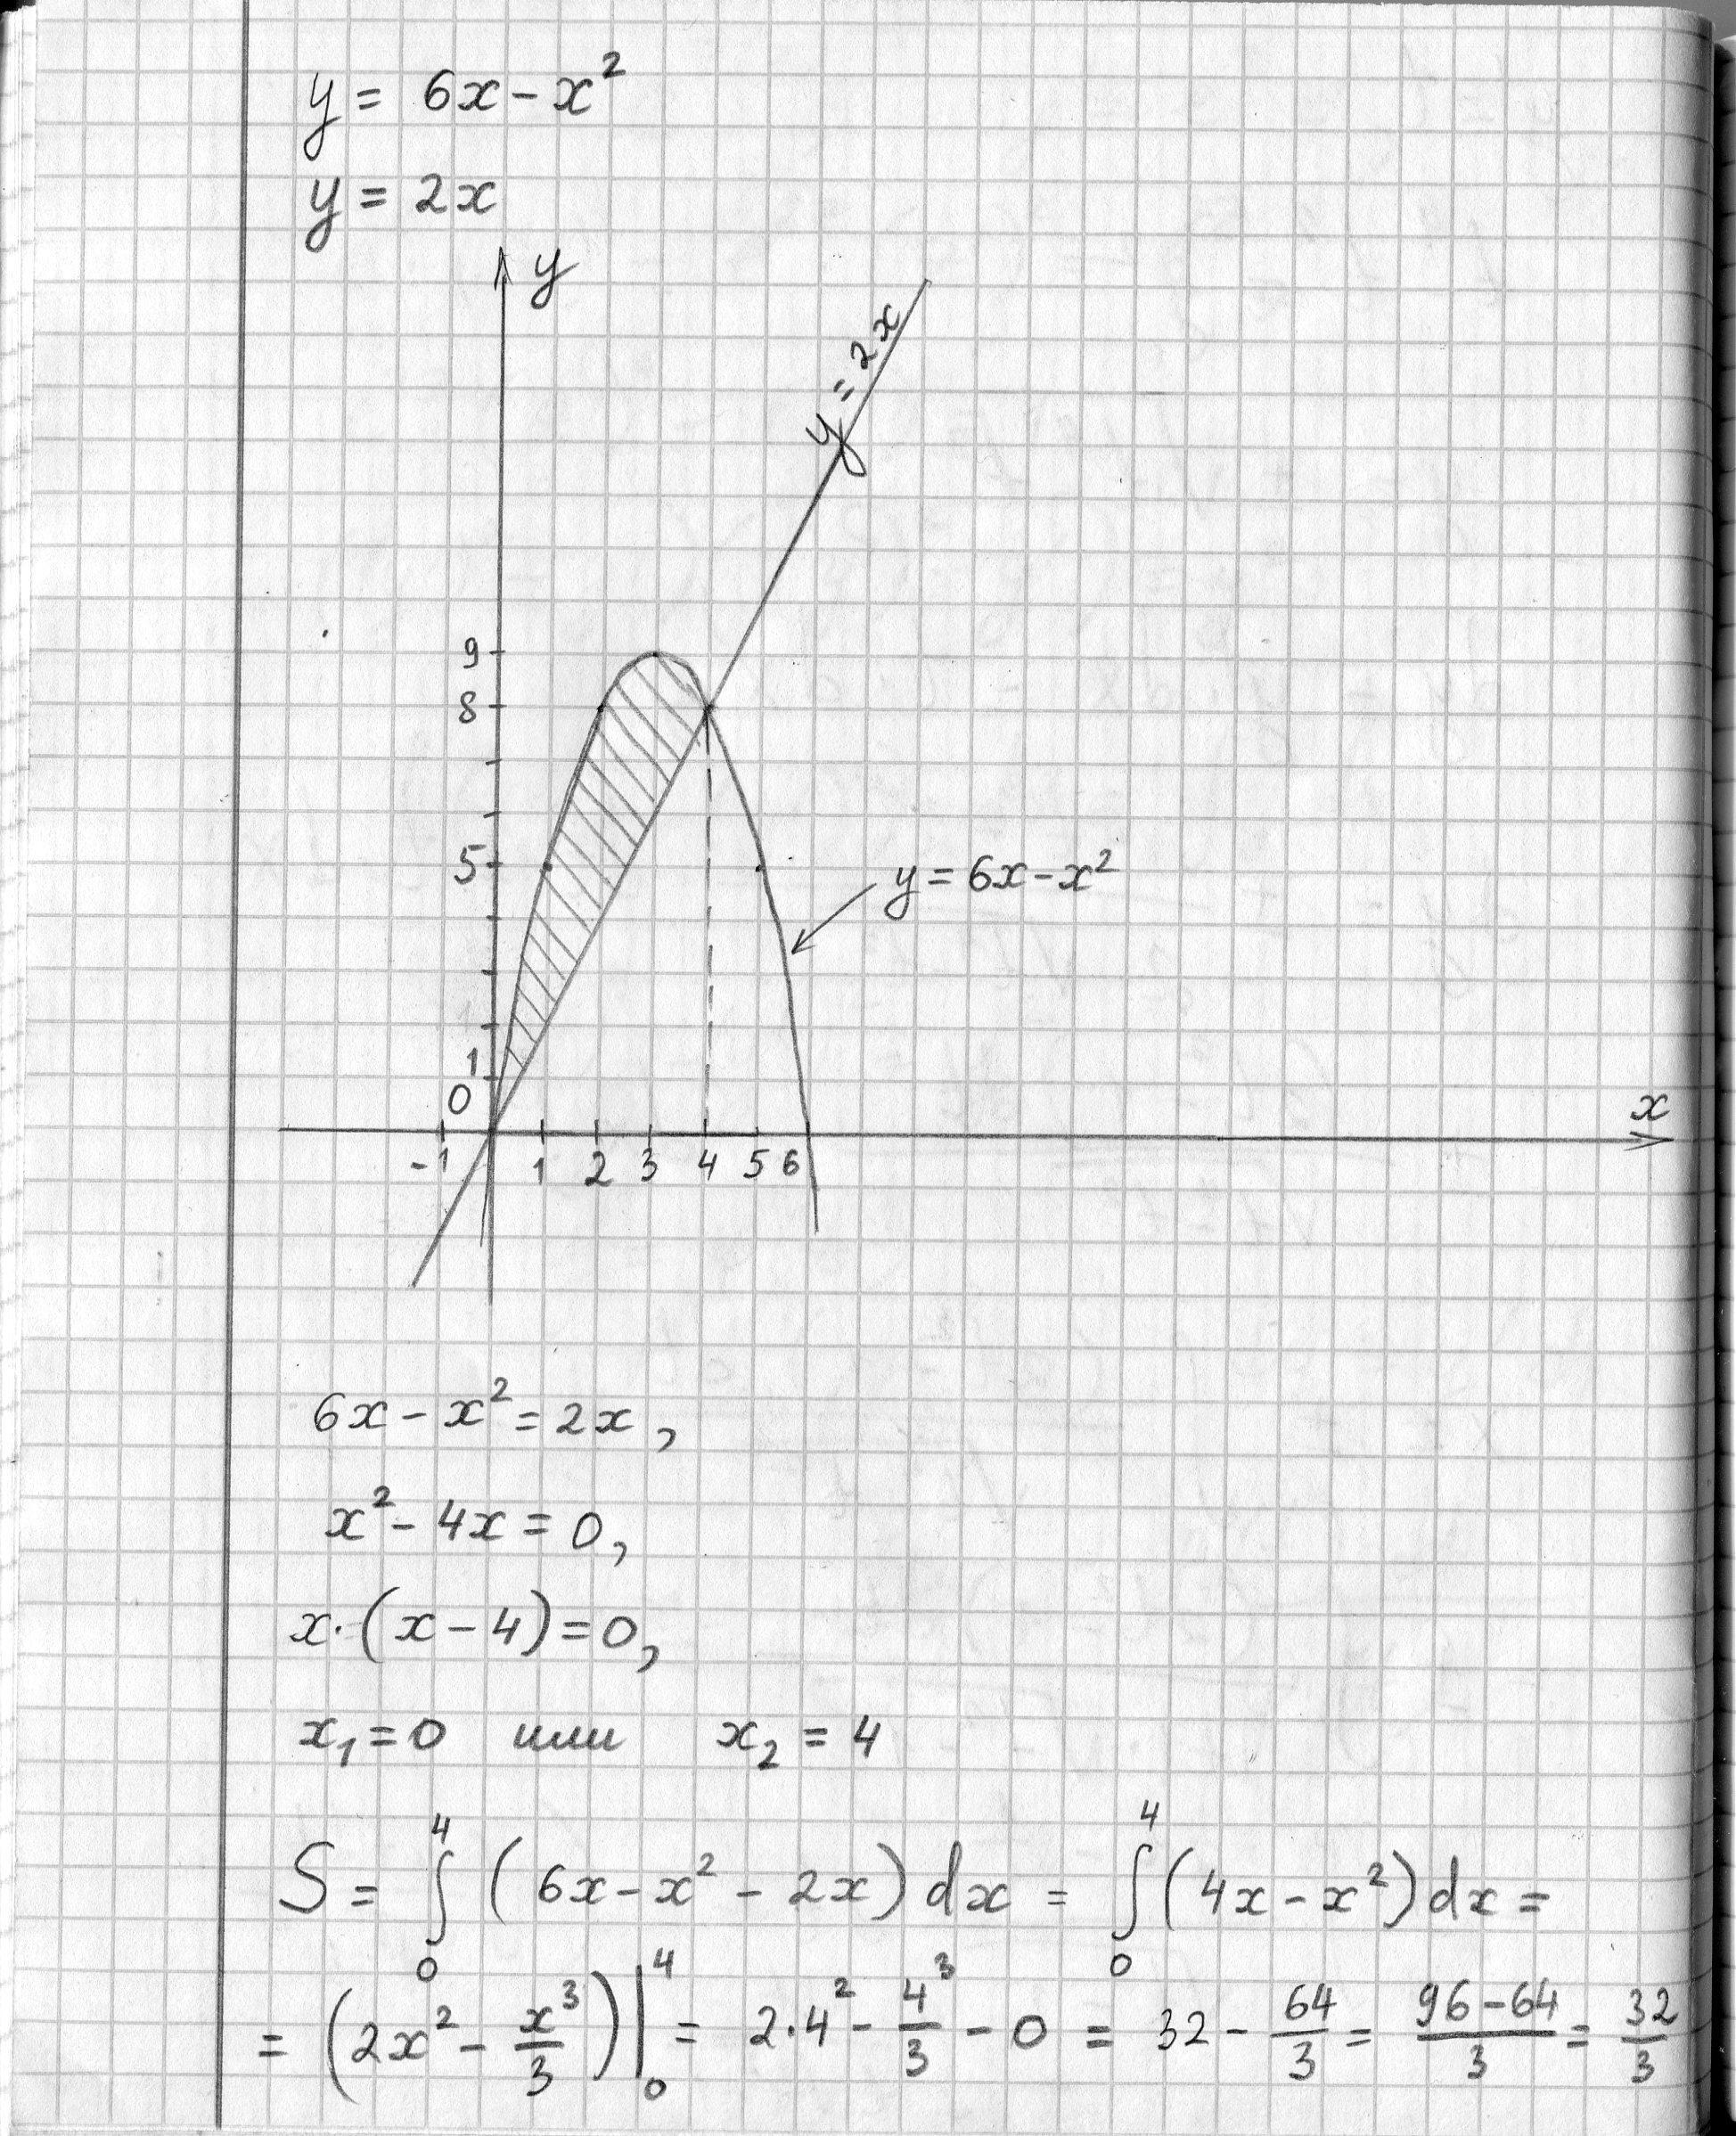 y = 6x - x²
y = 2x
y
y = 2x
9
8
5
y = 6x - x²
1
0
x
-1 1 2 3 4 5 6
6x - x² = 2x,
x² - 4x = 0,
x·(x - 4) = 0,
x₁ = 0 или x₂ = 4
S = ∫₀⁴ (6x - x² - 2x) dx = ∫₀⁴ (4x - x²) dx =
= (2x² - x³/3)|₀⁴ = 2·4² - 4³/3 - 0 = 32 - 64/3 = (96-64)/3 = 32/3